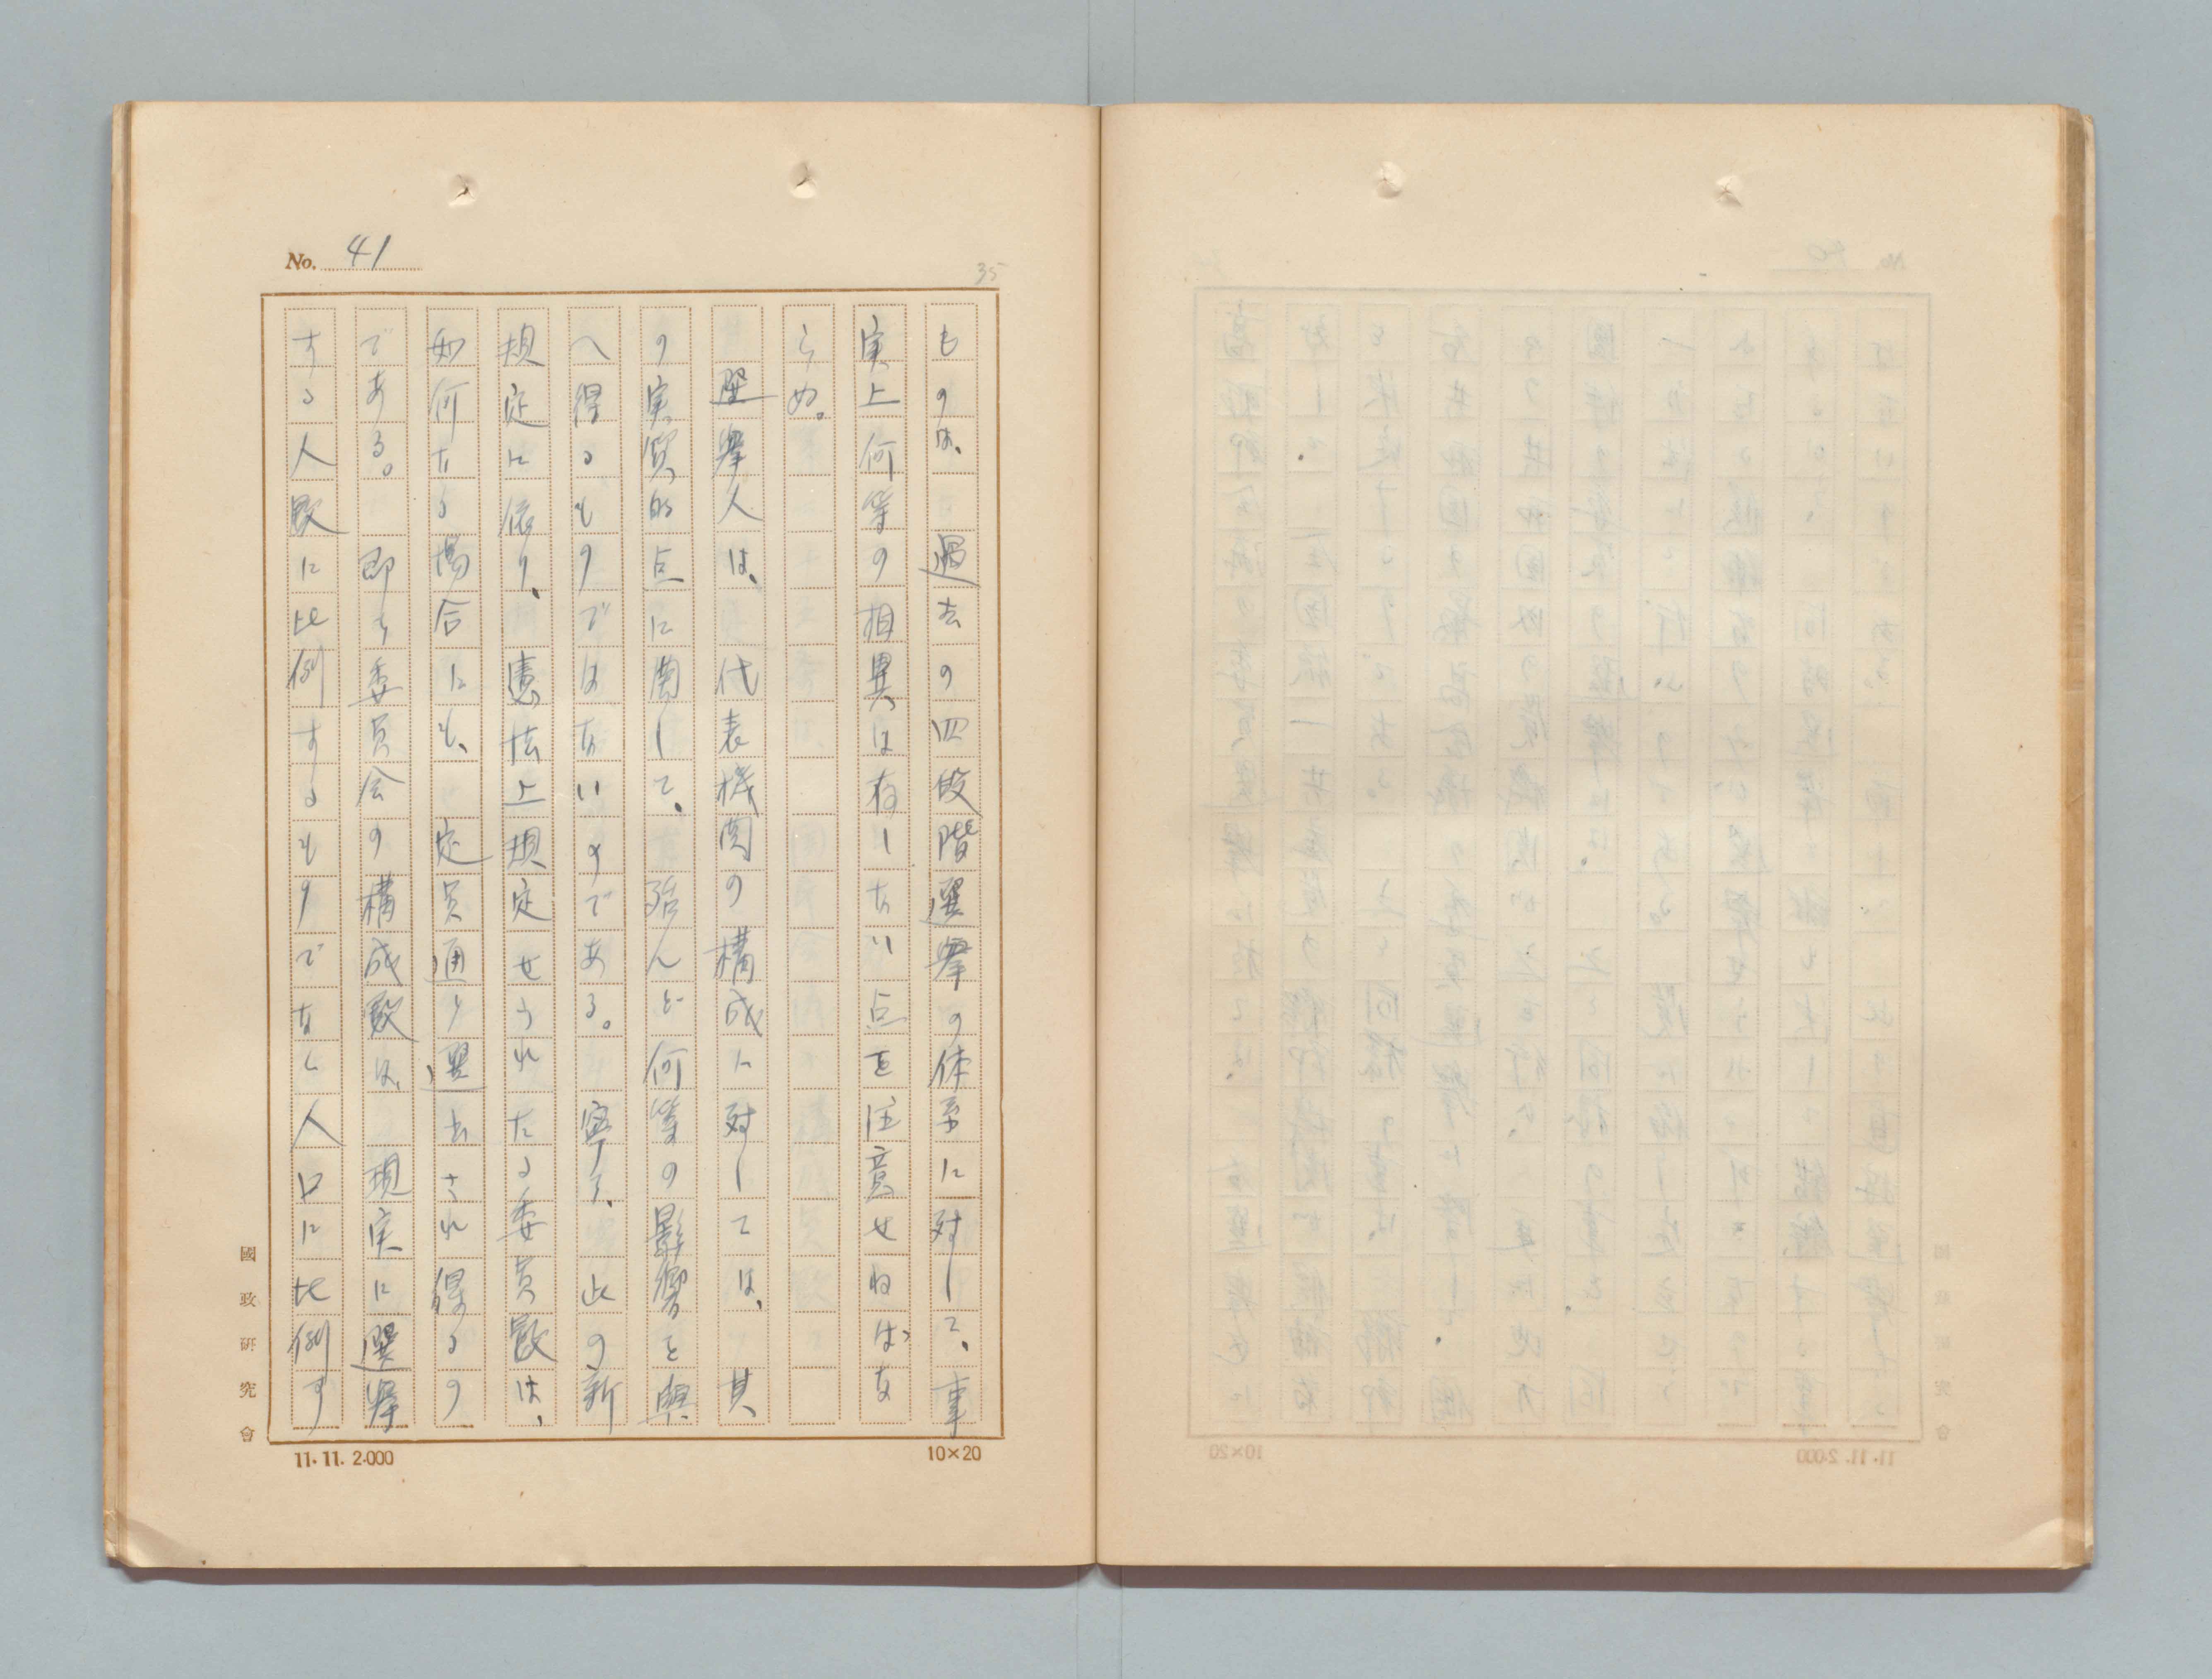 No. 41
35
ものは、過去の四段階選挙の体系に対して、事
実上何等の相異は存しない点を注意せねばな
らぬ。
選挙人は、代表機関の構成に対しては、其
の実質的点に関して、殆んど何等の影響を与
へ得るものではないのである。寧ろ、此の新
規定に依り、憲法上規定せられたる委員数は、
如何なる場合にも、定員通り選出され得るの
である。即ち委員会の構成数は、現実に選挙
する人数に比例するものでなく人口に比例す
國政研究會
11.11. 2.000
10×20